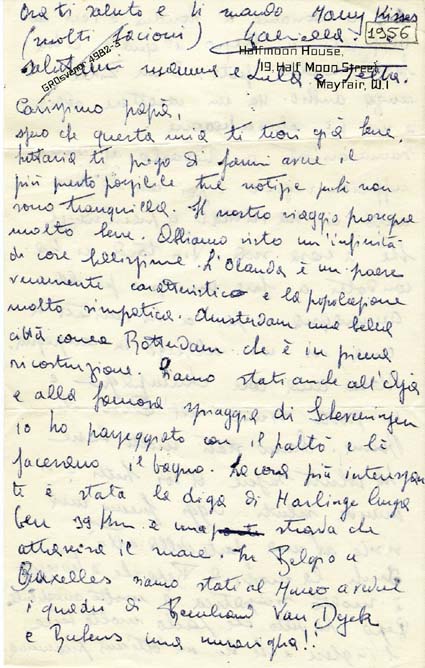 Ora ti saluto e ti mando Many Kisses
(molti bacioni)
1956
salutami mamma e Lella e
GROsvenor 4982-3
Halfmoon House,
19, Half Moon Street,
Mayfair, W.1
Carissimo papà,
spero che questa mia ti trovi già bene,
tuttavia ti prego di farmi avere, il
più presto possibile tue notizie perchè non
sono tranquilla. Il nostro viaggio prosegue
molto bene. Abbiamo visto un'infinità
di cose bellissime. L'Olanda è un paese
veramente caratteristico e la popolazione
molto simpatica. Amsterdam una bella
città come Rotterdam che è in piena
ricostruzione. Siamo stati anche all'Aja
e alla famosa spiaggia di Scheveningen
io ho passeggiato con il paltò e là
facevano il bagno. La cosa più interessan
te è stata la diga di Harlinge lunga
ben 39 Km. e una strada che
attraversa il mare. In Belgio a
Bruxelles siamo stati al Museo a vedere
i quadri di Rembrand Van Dyck
e Rubens una meraviglia!!